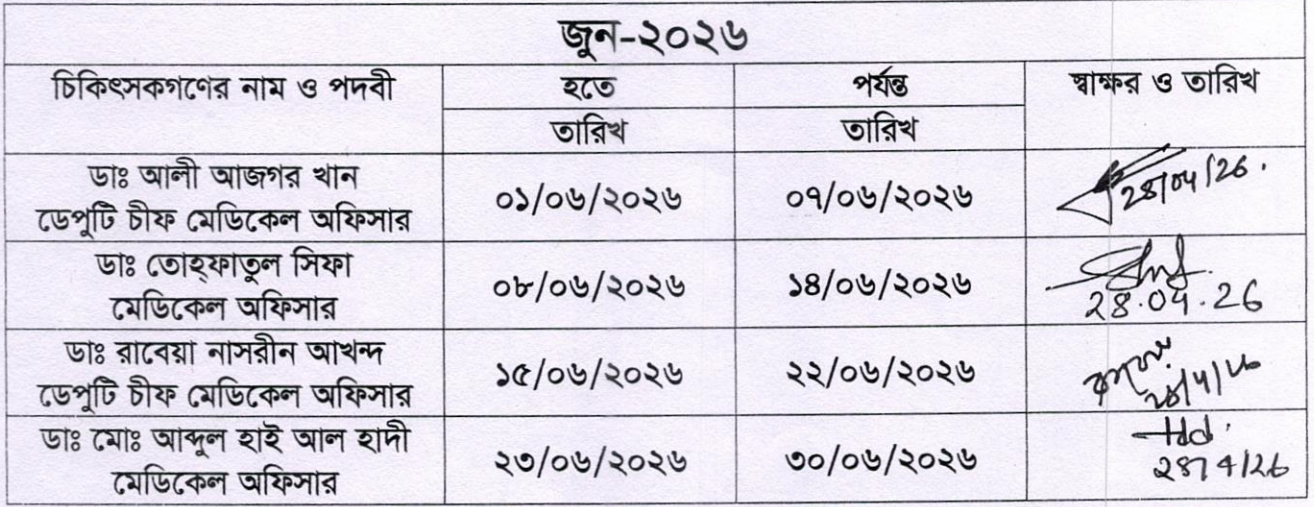 জুন-২০২৬
চিকিৎসকগণের নাম ও পদবী
হতে
পর্যন্ত
স্বাক্ষর ও তারিখ
তারিখ
তারিখ
ডাঃ আলী আজগর খান
ডেপুটি চীফ মেডিকেল অফিসার
০১/০৬/২০২৬
০৭/০৬/২০২৬
28/04/26.
ডাঃ তোহ্ফাতুল সিফা
মেডিকেল অফিসার
০৮/০৬/২০২৬
১৪/০৬/২০২৬
28.04.26
ডাঃ রাবেয়া নাসরীন আখন্দ
ডেপুটি চীফ মেডিকেল অফিসার
১৫/০৬/২০২৬
২২/০৬/২০২৬
ডাঃ মোঃ আব্দুল হাই আল হাদী
মেডিকেল অফিসার
২৩/০৬/২০২৬
৩০/০৬/২০২৬
28/4/26